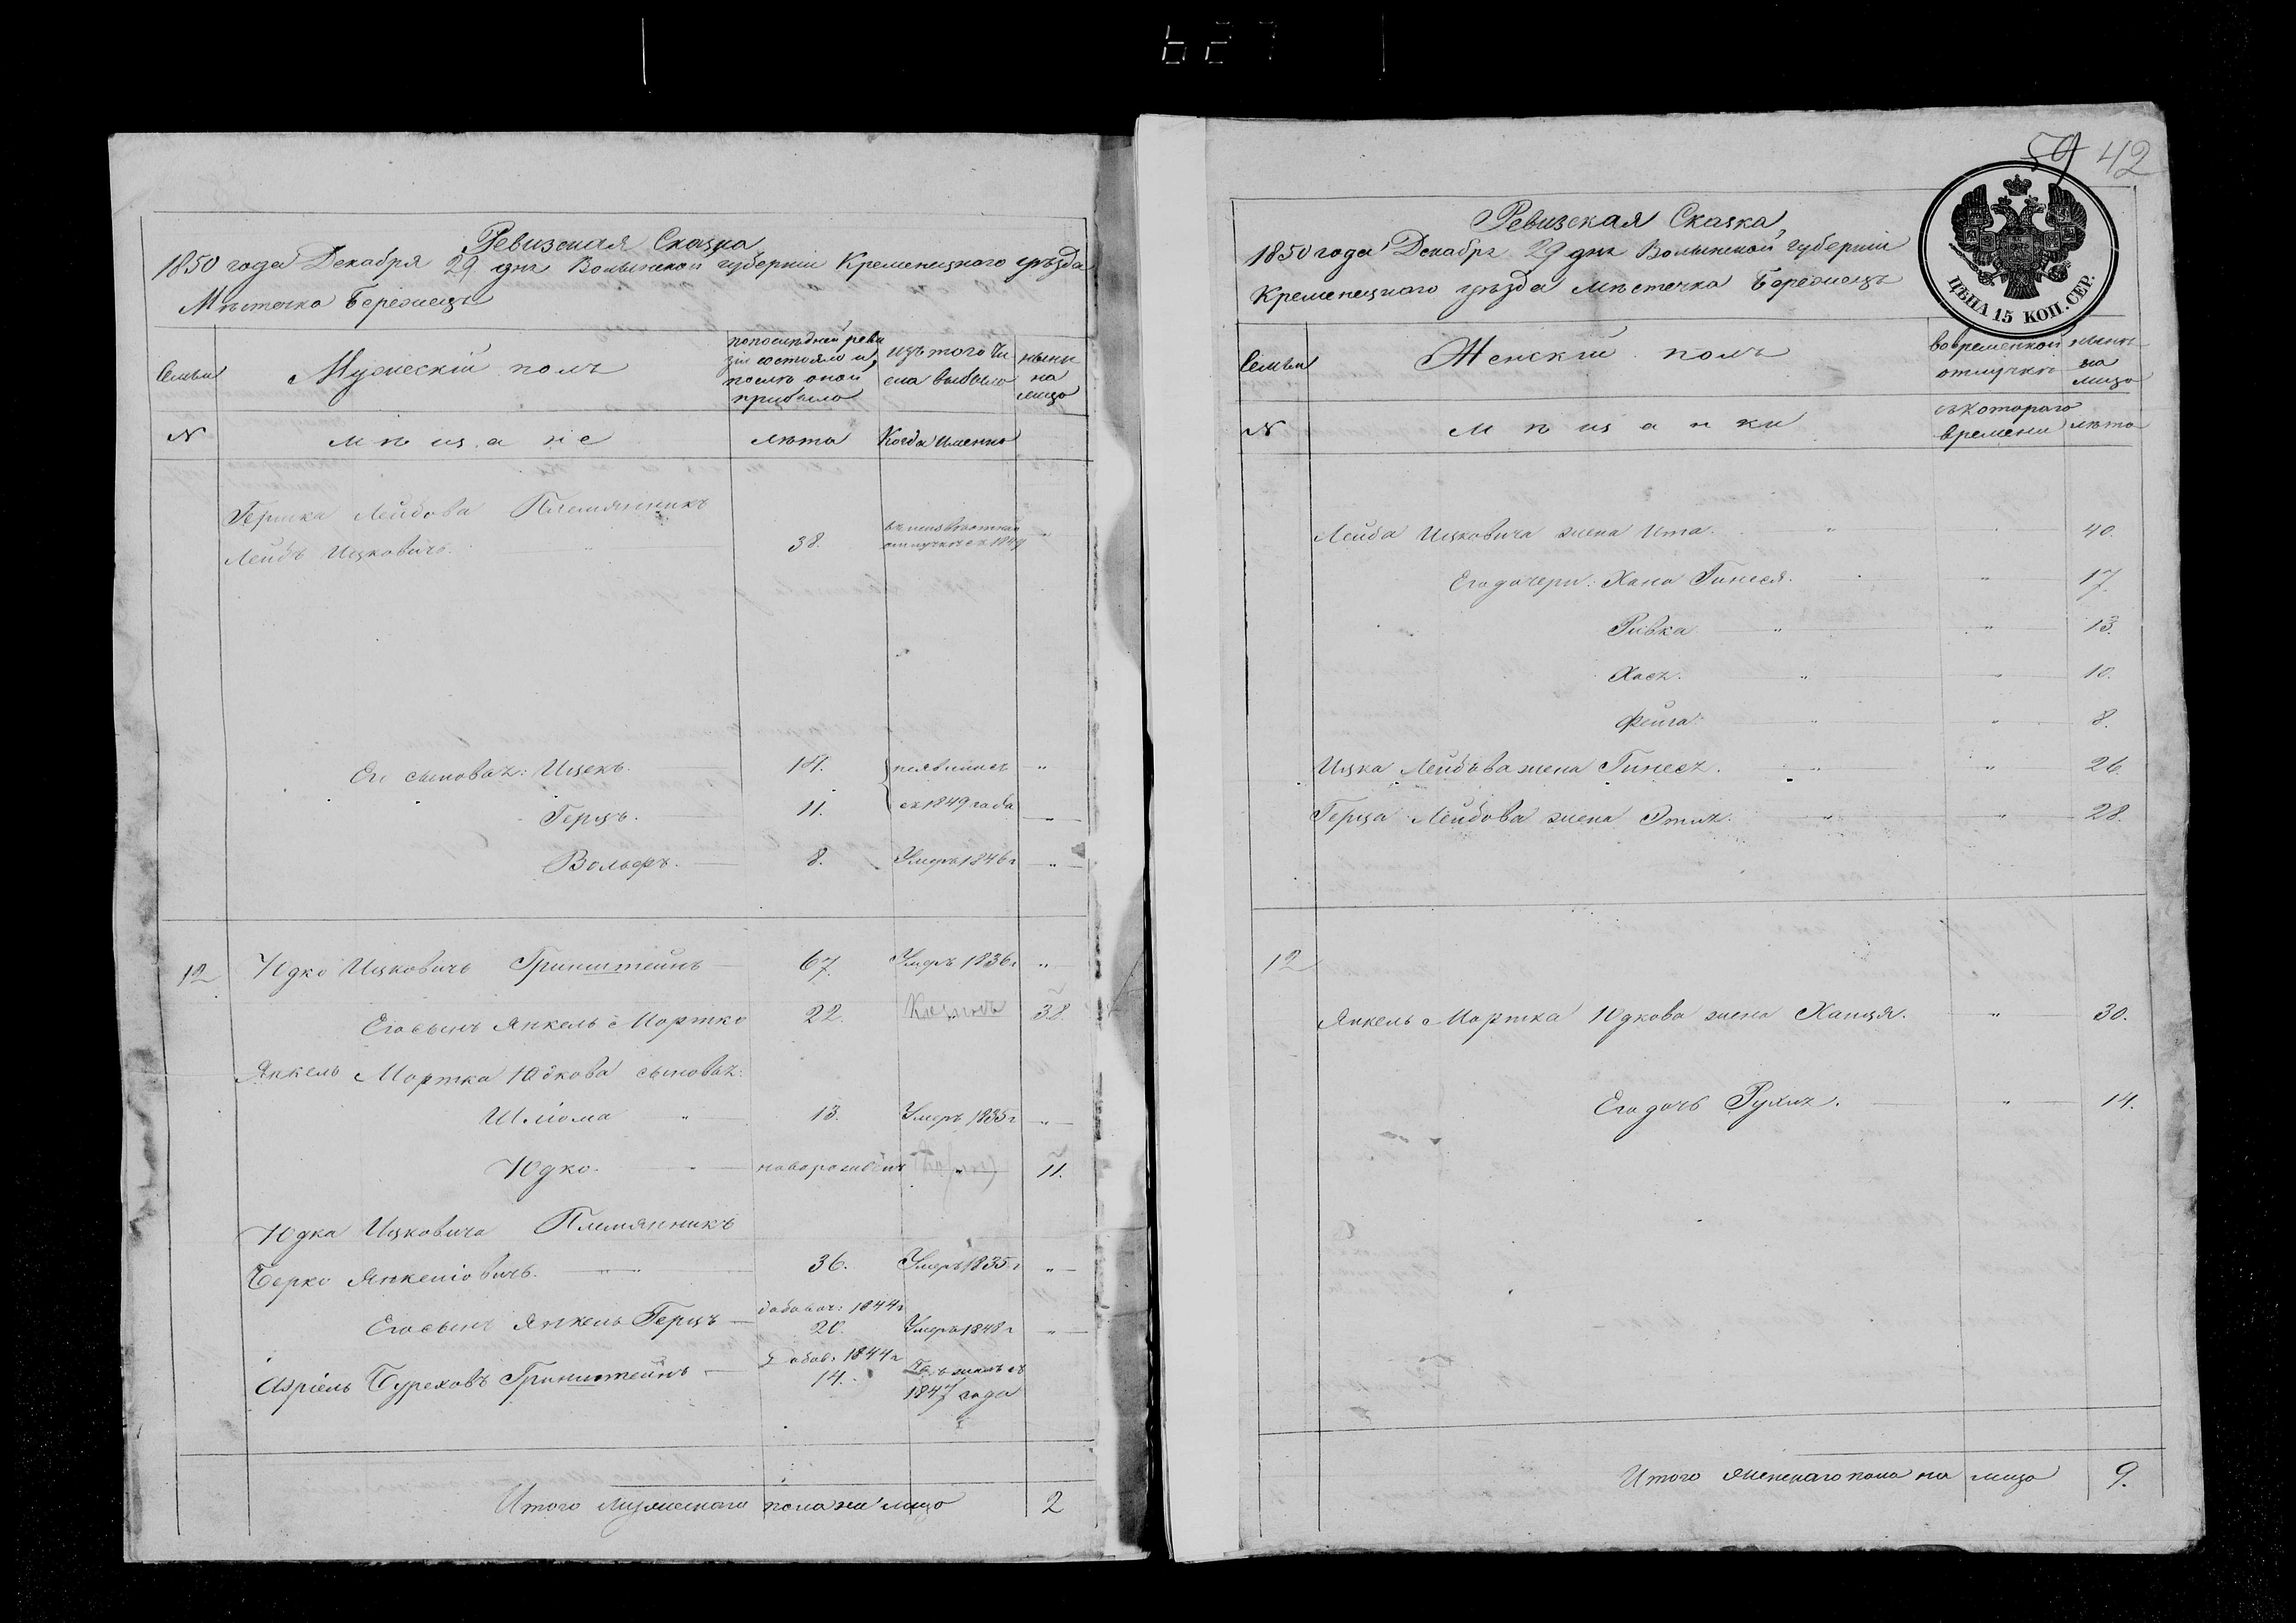 627
Ревизская Сказка
1850 года Декабря 29 дня Волынской губернии Кременецкого уѣзда
Мѣстечка Бережецъ
Семьи
Мужескій полъ
по последней реви
зіи состояло и
послѣ оной
прибыло
изъ того чи
сла выбыло
нынѣ
на
лицо
№
мѣщане
лѣта
Когда именно
Гершка Лейбова Племянникъ
Лейбъ Ицковичъ. 38. въ неизвѣстной
отлучкѣ съ 1849 "
Его сыновья: Ицекъ. 18. неявился "
Герцъ. 11. съ 1849 года "
Вольфъ. 8. Умеръ 1846 г "
12 Юдко Ицковичъ Гринштейнъ 67. Умеръ 1836 г "
Его сынъ Янкель Мортко 22. " 38.
Янкель Мортка Юдкова сыновья:
Шлiома " 13. Умеръ 1835 г "
Юдко. новорожден " 11.
Юдка Ицковича Племянникъ
Берко Янкелiовичъ. 36. Умеръ 1835 г "
добавоч: 1844 г
Его сынъ Янкель Герцъ 20. Умеръ 1848 г "
Добав: 1844 г
Азрiель Буреховъ Гринштейнъ 14.
1847 года
Итого мужескаго пола на лицо 2
59 42
Ревизская Сказка
1850 года Декабря 29 дня Волынской губерніи
Кременецкаго уѣзда мѣстечка Бережецъ
ЦѢНА 15 КОП. СЕР.
Семьи
Женскій полъ
во временной
отлучкѣ
нынѣ
на
лицо
№
мѣщанки
съ котораго
времени
лѣта
Лейба Ицковича жена Ита. " 40.
Его дочери: Хана Гинеся. " 17.
Ривка " " 13.
Хася. " 10.
Фейга. " " 8.
Ицка Лейбова жена Гинеся. " " 26.
Герца Лейбова жена Этля. " " 28.
12
Янкель Мортка Юдкова жена Ханця. " 30.
Его дочь Рухля. " 14.
Итого женскаго пола на лицо 9.